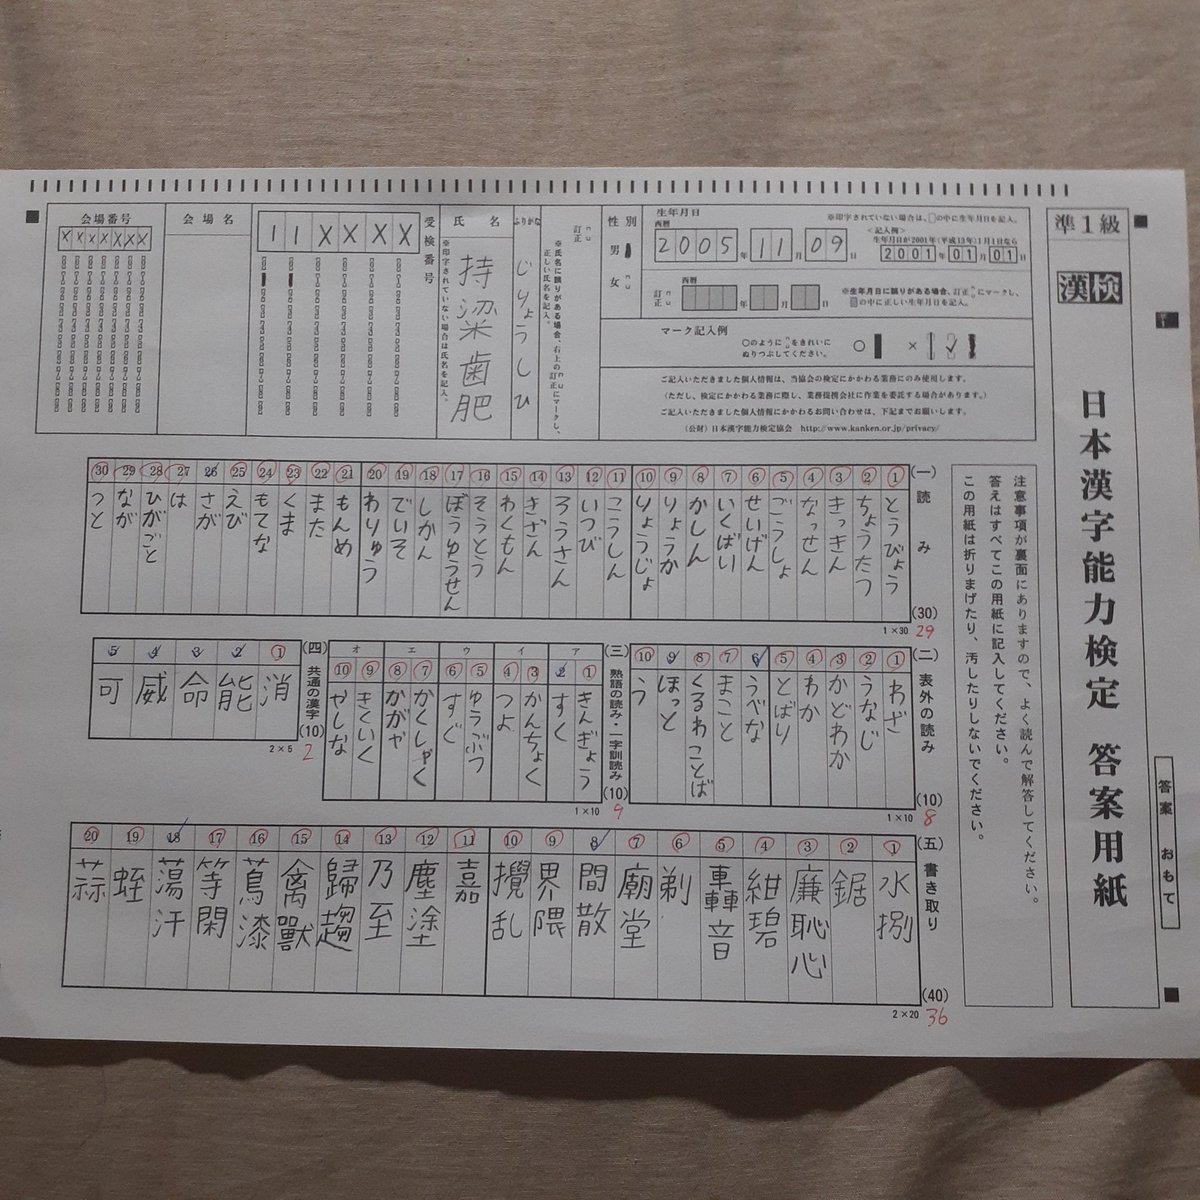 準1級
漢検
日本漢字能力検定 答案用紙
答案 おもて
注意事項が裏面にありますので、よく読んで解答してください。
答えはすべてこの用紙に記入してください。
この用紙は折りまげたり、汚したりしないでください。
会場番号
XXXXXXX
会場名
受検番号
11XXXX
※印字されていない場合は氏名を記入。
氏名
持梁歯肥
ふりがな
じりょうしひ
※氏名に誤りがある場合、右上の訂正にマークし、
正しい氏名を記入。
訂正
性別
男
女
生年月日
※印字されていない場合は、の中に生年月日を記入。
西暦
2005年11月09日
<記入例>
生年月日が2001年(平成13年)1月1日なら
2001年01月01日
訂正
西暦
年 月 日
※生年月日に誤りがある場合、訂正にマークし、
の中に正しい生年月日を記入。
マーク記入例
○のように をきれいに
ぬりつぶしてください。
○ ×
ご記入いただきました個人情報は、当協会の検定にかかわる業務にのみ使用します。
(ただし、検定にかかわる業務に際し、業務提携会社に作業を委託する場合があります。)
ご記入いただきました個人情報にかかわるお問い合わせは、下記までお願いします。
(公財)日本漢字能力検定協会 http://www.kanken.or.jp/privacy/
(一) 読み (30)
1×30
29
1 とうびょう
2 ちょうたつ
3 きっきん
4 なっせん
5 ごうしょ
6 せいげん
7 いくばい
8 かしん
9 りょうか
10 りょうじょ
11 こうしん
12 いつび
13 ろうさん
14 きざん
15 わくもん
16 そうとう
17 ぼうゆうせん
18 しかん
19 でいそ
20 わりゅう
21 もんめ
22 また
23 くま
24 もてな
25 えび
26 さが
27 は
28 ひがごと
29 なが
30 つと
(二) 表外の読み (10)
1×10
8
1 わざ
2 うなじ
3 かどわか
4 わか
5 とばり
6 うべな
7 まこと
8 くるわことば
9 ほっと
10 う
(三) 熟語の読み・一字訓読み (10)
1×10
9
ア
1 きんぎょう
2 すく
イ
3 かんちょく
4 つよ
ウ
5 ゆうぶつ
6 すぐ
エ
7 かくしゃく
8 かがや
オ
9 きくいく
10 やしな
(四) 共通の漢字 (10)
2×5
2
1 消
2 能
3 命
4 威
5 可
(五) 書き取り (40)
2×20
36
1 水捌
2 鋸
3 廉恥心
4 紺碧
5 轟音
6 剃
7 廟堂
8 間散
9 界隈
10 攪乱
11 嘉
12 塵塗
13 乃至
14 歸趨
15 禽獸
16 蔦漆
17 等閑
18 蕩汗
19 蛭
20 蒜